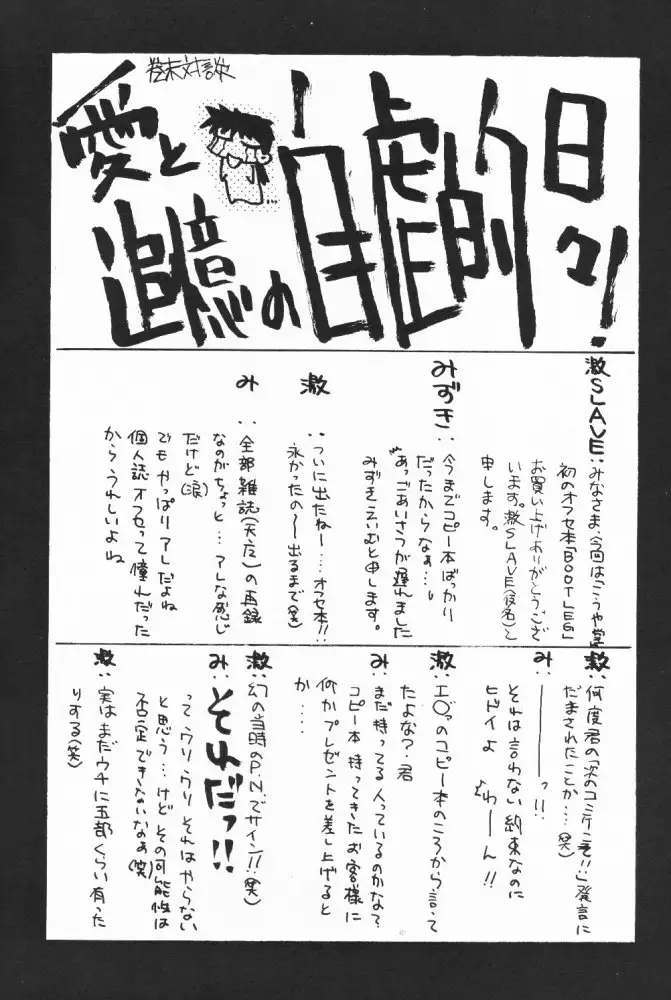 巻末対談
愛と
追憶の
自虐的
日々!
激SLAVE:みなさま、今回はこうや堂
初のオフセ本「BOOT LEG」
お買い上げありがとうござ
います。激SLAVE(仮名)と
申します。
みずき:今までコピー本ばっかり
だったからなぁ…。
あっごあいさつが遅れました
みずきえいむと申します。
激:ついに出たねー…オフセ本!!
永かったの〜出るまで(笑)
み:全部雑誌(天広)の再録
なのがちょっと…アレな感じ
だけど(涙)
でもやっぱりアレだよね
個人誌オフセって憧れだった
からうれしいよね
激:何度君の「次のコミケこそ!!」発言に
だまされたことか…(笑)
み:――――っ!!
それは言わない約束なのに
ヒドイよ よわーん!!
激:エ○っのコピー本のころから言って
たよな?君
み:まだ持ってる人っているのかな?
コピー本持ってきたお客様に
何かプレゼントを差し上げると
か…
激:幻の当時のP.N.でサイン!!(笑)
み:それだっ!!
ってウソウソそれはやらない
と思う…けどその可能性は
否定できないなぁ(笑)
激:実はまだウチに五部くらい有った
りする(笑)